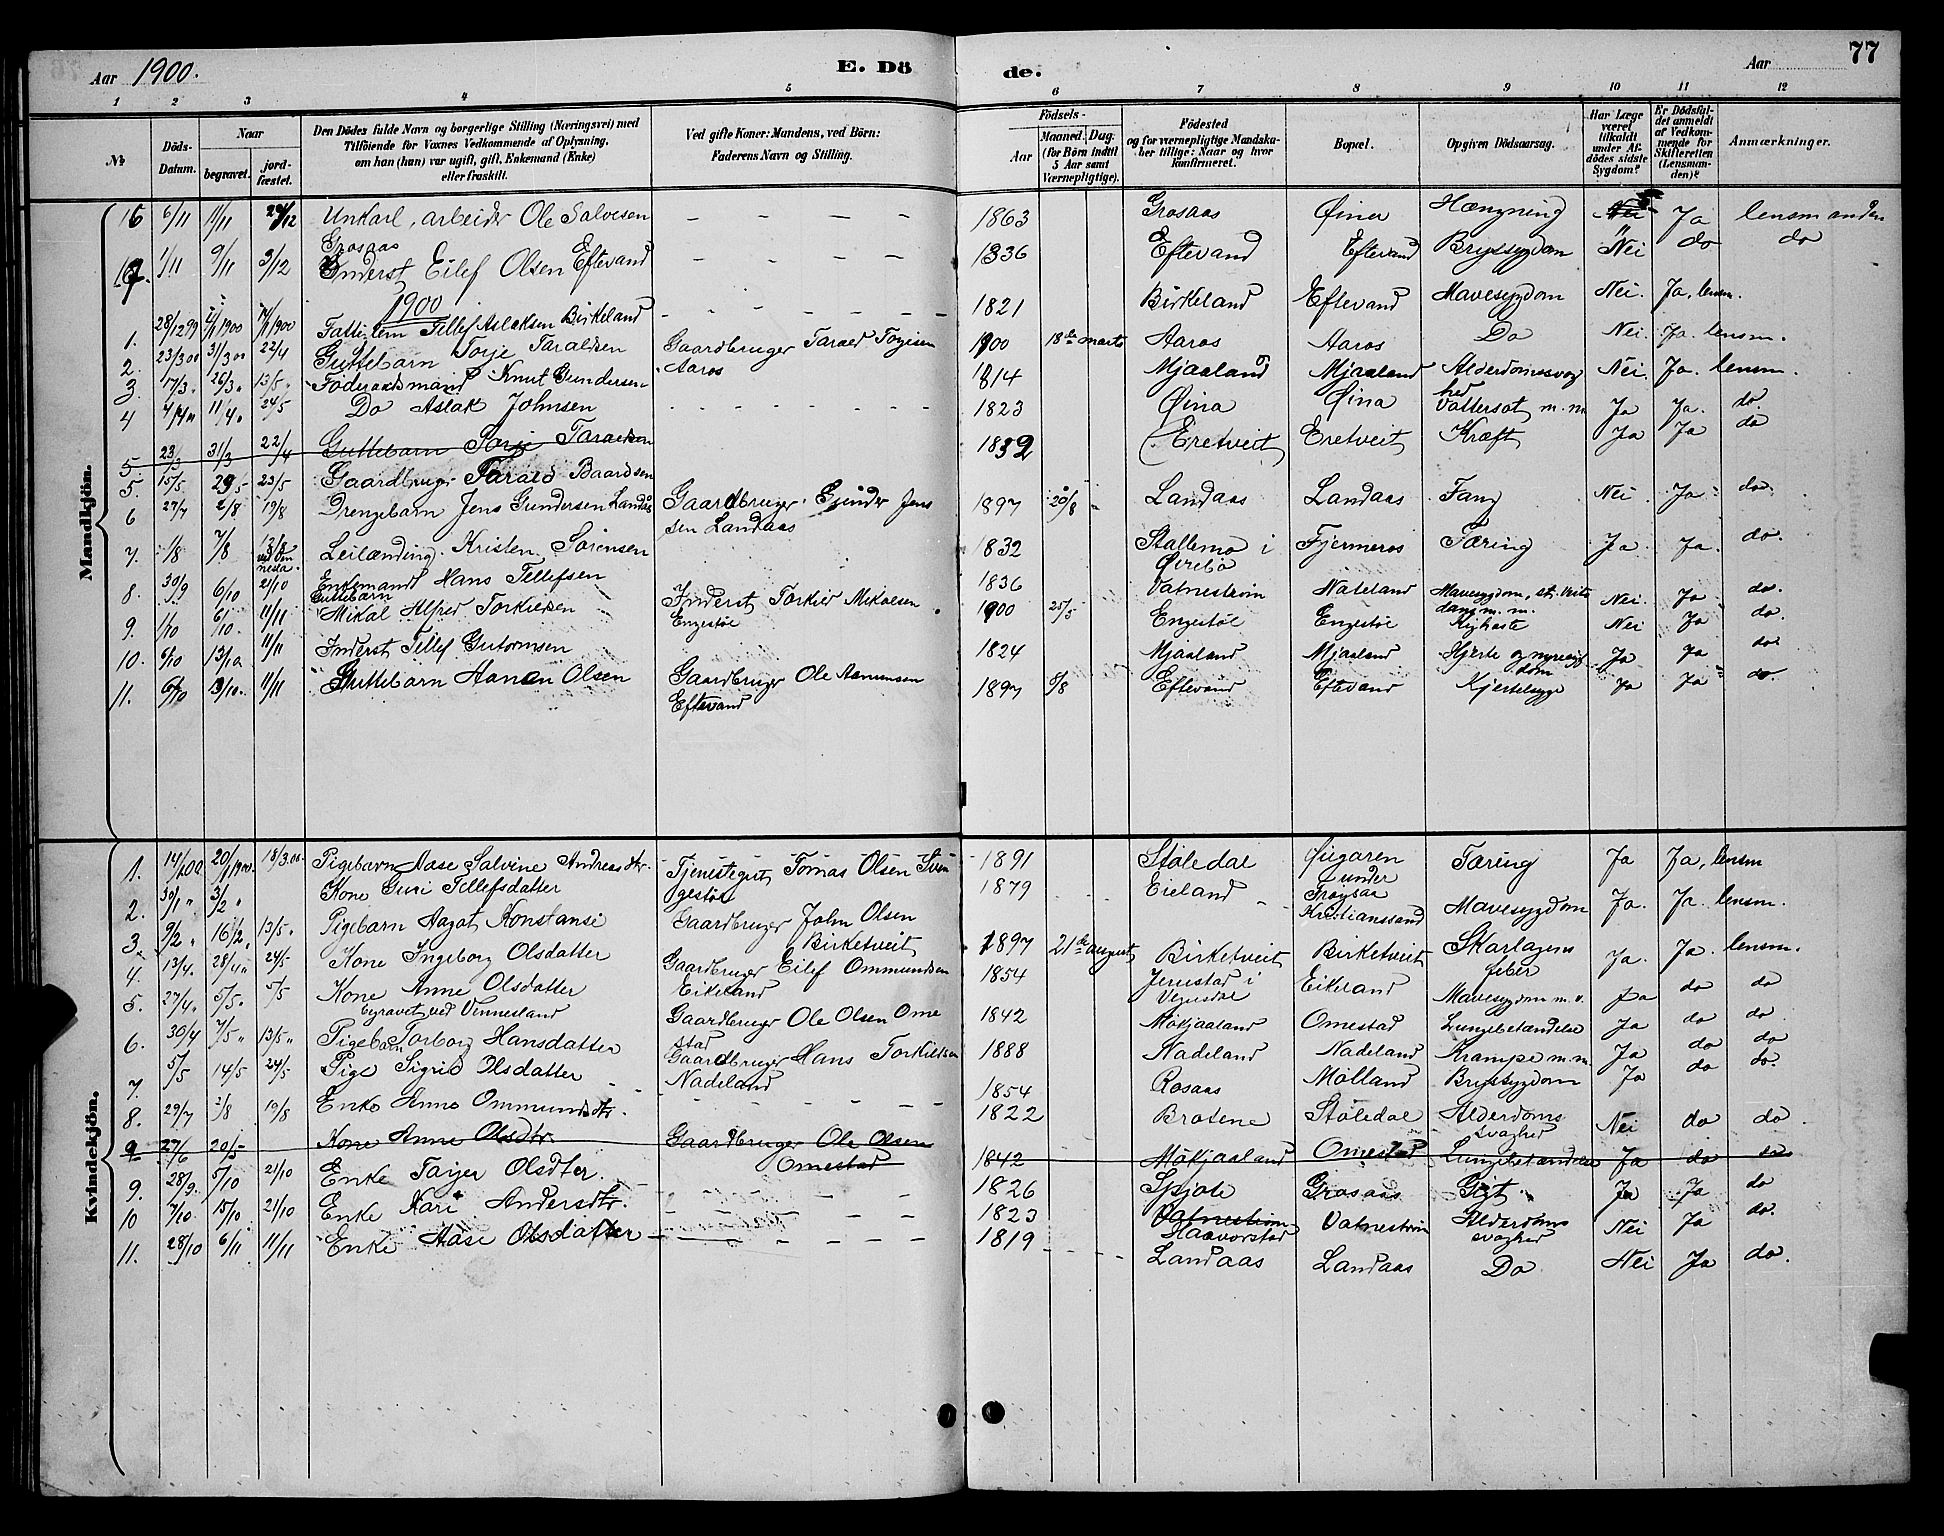 Aar 1900. E. Dö
de. Aar 77
1 2 3 4 5 6 7 8 9 10 11 12
№ Döds-Datum. Naar begravet. jordfæstet. Den Dödes fulde Navn og borgerlige Stilling (Næringsvei) med Tilföiende for Voxnes Vedkommende af Oplysning, om han (hun) var ugift, gift, Enkemand (Enke) eller fraskilt. Ved gifte Koner: Mandens, ved Börn: Faderens Navn og Stilling. Födsels- Aar Maaned. Dag. (for Börn indtil 5 Aar samt Værnepligtige). Födested og for værnepligtige Mandskaber tillige: Naar og hvor konfirmeret. Bopæl. Opgiven Dödsaarsag. Har Læge været tilkaldt under Afdödes sidste Sygdom? Er Dödsfaldet anmeldt af Vedkommende for Skifteretten (Lensmanden)? Anmærkninger.
Mandkjön.
16 6/11 11/11 29/12 Unkarl, arbeider Ole Salvesen Grosaas 1863 Grosaas Øina Hængning Nei Ja lensmanden
17. 1/11 9/11 3/12 Inderst Eilef Olsen Eftevand 1836 Eftevand Eftevand Brystsygdom Nei do do
1900
1. 28/12 99 1/1900 Fattiglem Tellef Aslaksen Birkeland 1821 Birkeland Eftevand Mavesygdom Nei. Ja, lensm.
2. 23/3 00 31/3 00 22/4 Guttebarn Torje Taraldsen Gaardbruger Tarald Torjisen Aaros 1900 18de marts Aaros Aaros Do Nei. Ja. lensm.
3. 17/3 " 26/3 " 13/5 " Föderaadsmand Knut Gundersen 1814 Mjaaland Mjaaland Alderdomssvaghed Nei. Ja. lensm.
4 4/4 " 11/4 " 24/5 Do Aslak Johnsen 1823 Øina Øina Vattersot m.m. Ja Ja. do
5 23/3 31/3 22/4 Guttebarn Torje Taraldsen
5. 15/5 29/5 23/5 Gaardbruger Tarald Baardsen 1832 Eretveit Eretveit Kræft Ja Ja do
6 27/7 2/8 19/8 Drengebarn Jens Gundersen Landås Gaardbruger Gunder Jensen Landaas 1897 20/8 Landaas Landaas Fang Nei. Ja do.
7. 1/8 7/8 12/8 Leilænding. Kristen Sörensen 1832 Stallemo i Øvrebö Fjermeros Tæring Ja Ja. do.
8. 30/9 6/10 21/10 Enkemand Hans Tellefsen 1836 Vatneström Nateland Mavesygdom, Nei. Ja do.
9. 1/10 6/10. 11/11 Guttebarn Mikal Alfred Torkildsen Inderst Torkild Mikalsen Engestöl 1900 25/5 Engestöl Engestöl Kighoste Nei Ja do.
10. 6/10 13/10 11/11 Inderst Tellef Gutormsen 1824 Mjaaland Mjaaland Hjerte og nyresygdom Ja Ja do
11. 6/10 13/10. 11/11 Guttebarn Hanan Olsen Gaardbruger Ole Aanunsen Eftevand 1897 8/8 Eftevand Eftevand Kjertelsyge Ja Ja do.
Kvindekjön.
1. 14/1 00 20/1 1900. 18/3 00 Pigebarn Aase Salvine Andreasdtr. Tjenestegut Tomas Olsen 1891 Støledal Øigaren under Tæring Ja Ja, lensm
2. 30/1 " 3/2 " Kone Guri Tellefsdatter 1879 Eieland Kristianssand Mavesygdom Ja. Ja. lensm.
3. 9/2 " 16/2 " 13/5 " Pigebarn Aagot Konstansi Gaardbruger John Olsen Birketveit 1897 21de august Birketveit Birketveit Skarlagensfeber Ja. Ja. lensm.
4. 13/4 " 28/4 " 24/5 Kone Ingeborg Olsdatter Gaardbruger Eilef Ommundsen Eikeland 1854 Jerustad i Vegusdal Eikeland Mavesygdom m.v. Ja do do
5. 27/4 " 5/5 " 5/5 Kone Anne Olsdatter Begravet ved Vennesland Gaardbruger Ole Olsen Omestad 1842 Mökjaaland Omestad Lungebetændelse Ja do do
6. 30/4 7/5 " 13/5 " Pigebarn Torborg Hansdatter Gaardbruger Hans Torkildsen Nadeland 1888 Nadeland Nadeland Krampe m.m. Ja do do
7. 5/5 14/5 24/5 Pige Sigrid Olsdatter 1854 Rosaas Mølland Brystsygdom Ja do do.
8. 29/7 2/8 19/8 Enke Anne Ommundsdtr. 1822 Brotene Støledal Alderdoms svaghed Nei do do
9 27/6 20/5 Kone Anne Olsdtr. Gaardbruger Ole Olsen Omestad 1842 Mökjaaland Omestad Lungebetændelse Ja do do
9. 28/9. 5/10 21/10 Enke Tarjer Olsdter. 1826 Spjote Grosaas Gigt Ja Ja do
10 7/10 15/10 21/10 Enke Kari Andersdtr. 1823 Vatneström Haavorstad Vatneström Alderdoms svaghed Nei Ja do.
11. 28/10 6/11 11/11 Enke Aase Olsdatter 1819 Landaas Landaas Do Nei Ja do.